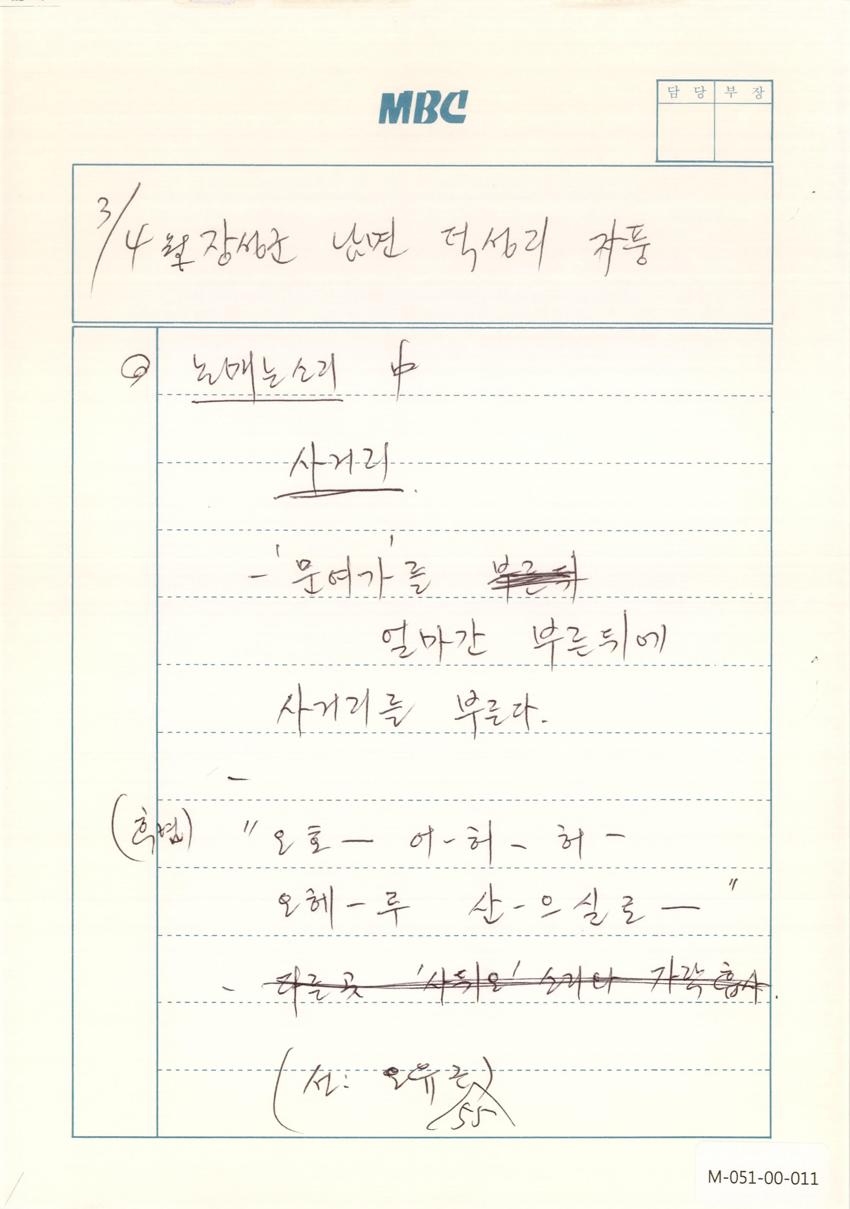 MBC
담당 부장
3/4 장성군 남면 덕성리 자풍
논매는소리 中
사거리.
- '문여가'를 부른뒤
얼마간 부른뒤에
사거리를 부른다.
-
(후렴) " 오호 — 어 - 허 - 허 -
오헤 - 루 산 - 으실로 — "
- 다른곳 '사뒤오' 소리와 가락 흡사.
(선: 오유근)
55
M-051-00-011